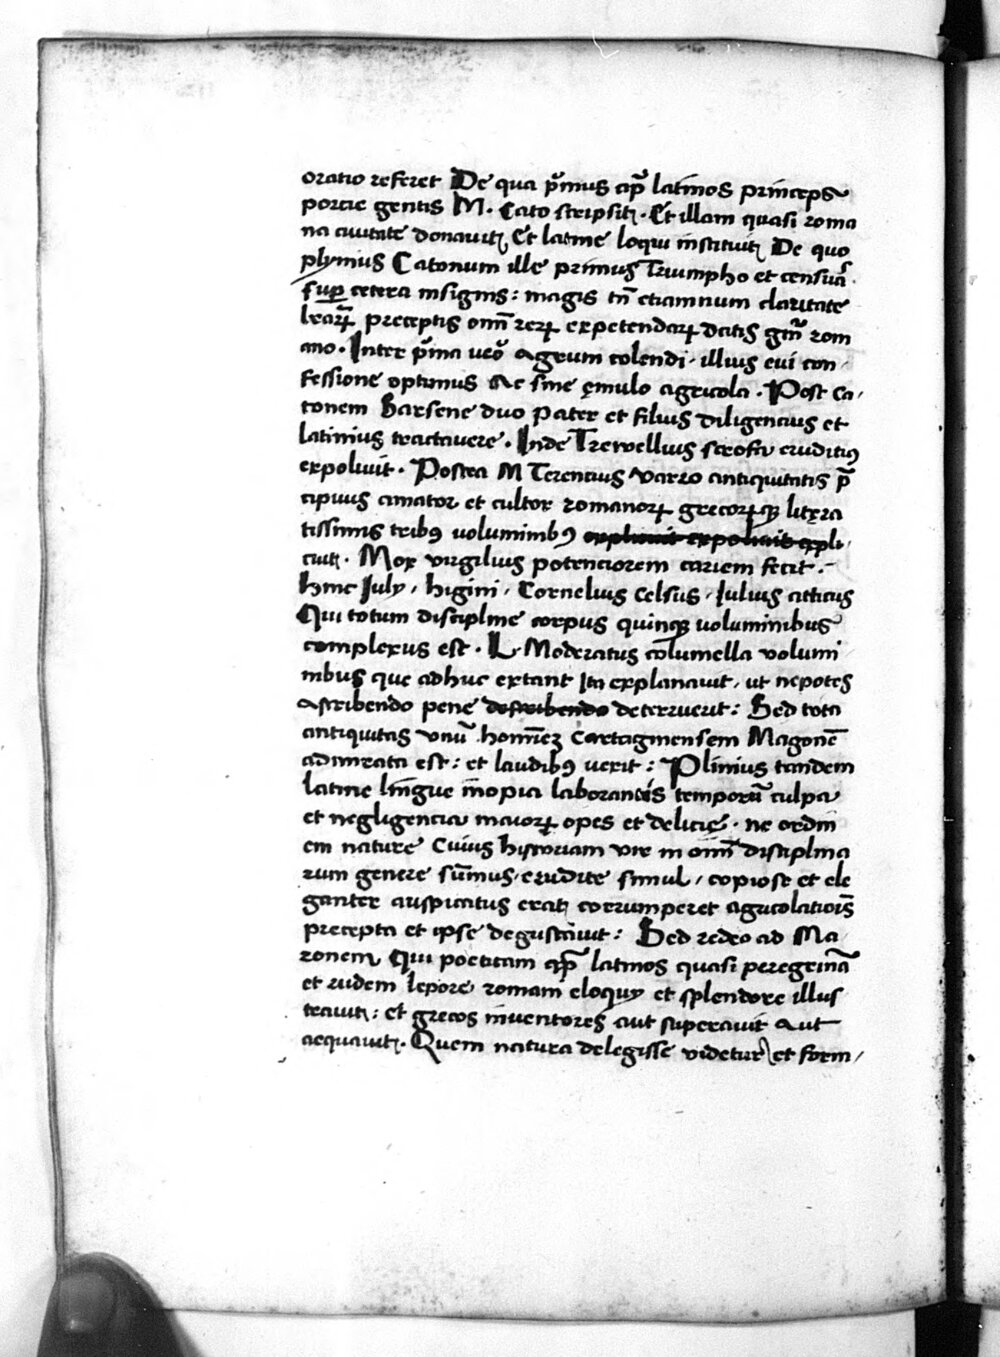 oratio referet De qua p̄mus ap̄ latinos princeps
porcie gentis M. Cato scripsit. Et illam quasi roma
na ciuitate donauit, Et latine loqui instituit, De quo
plynius Catonum ille primus Triumpho et censur̄a.
sup cetera insignis : magis tn̄ etiamnum claritate
lrār̄ꝝ preceptis om̄ rerꝝ expetendarꝝ datis gn̄i rom
ano. Inter p̄ma uero agrum colendi. illius eui con,
fessione optimus Ac sine ęmulo agricola. Post Ca,
tonem Sarsene duo pater et filius diligencius et
latinius tractauere. Inde Tremellius scrofa eruditiꝰ
expoliuit. Postea M Terencius Varro antiquitatis p̄
cipuus amator et cultor romanorꝝ grecorꝝqꝫ litęra
tissimis tribꝰ voluminibꝰ expli,
cuit. Mox virgilius potenciorem cariem fecit.
hinc July, higini, Cornelius Celsus, Iulius atticus
Qui totum discipline corpus quinqꝫ uoluminibus
complexus est. L. Moderatus columella volumi
nibus que adhuc extant Ita explanauit, ut nepotes
Ascribendo pene deterruerit : Sed tota
antiquitas vnū hominēz Cartaginensem Magonē
admirata est : et laudibꝰ uexit : Plinius tandem
latine lingue inopia laborantis temporū culpa
et negligencia maiorꝝ opes et delicię. ne ordin
em nature Cuius historiam vir in om̄i disciplina
rum genere sum̄us, erudite simul, copiose et ele
ganter auspicatus erat, corrumperet agricolatiōis
precepta et ipse degustauit : Sed redeo ad Ma
ronem Qui poeticam ap̄ latinos quasi peregrinā
et rudem lepore, romam eloquy et splendore illus
trauit : et grecos inuentores aut superauit Aut
aequauit. Quem natura delegisse videtur, et form,